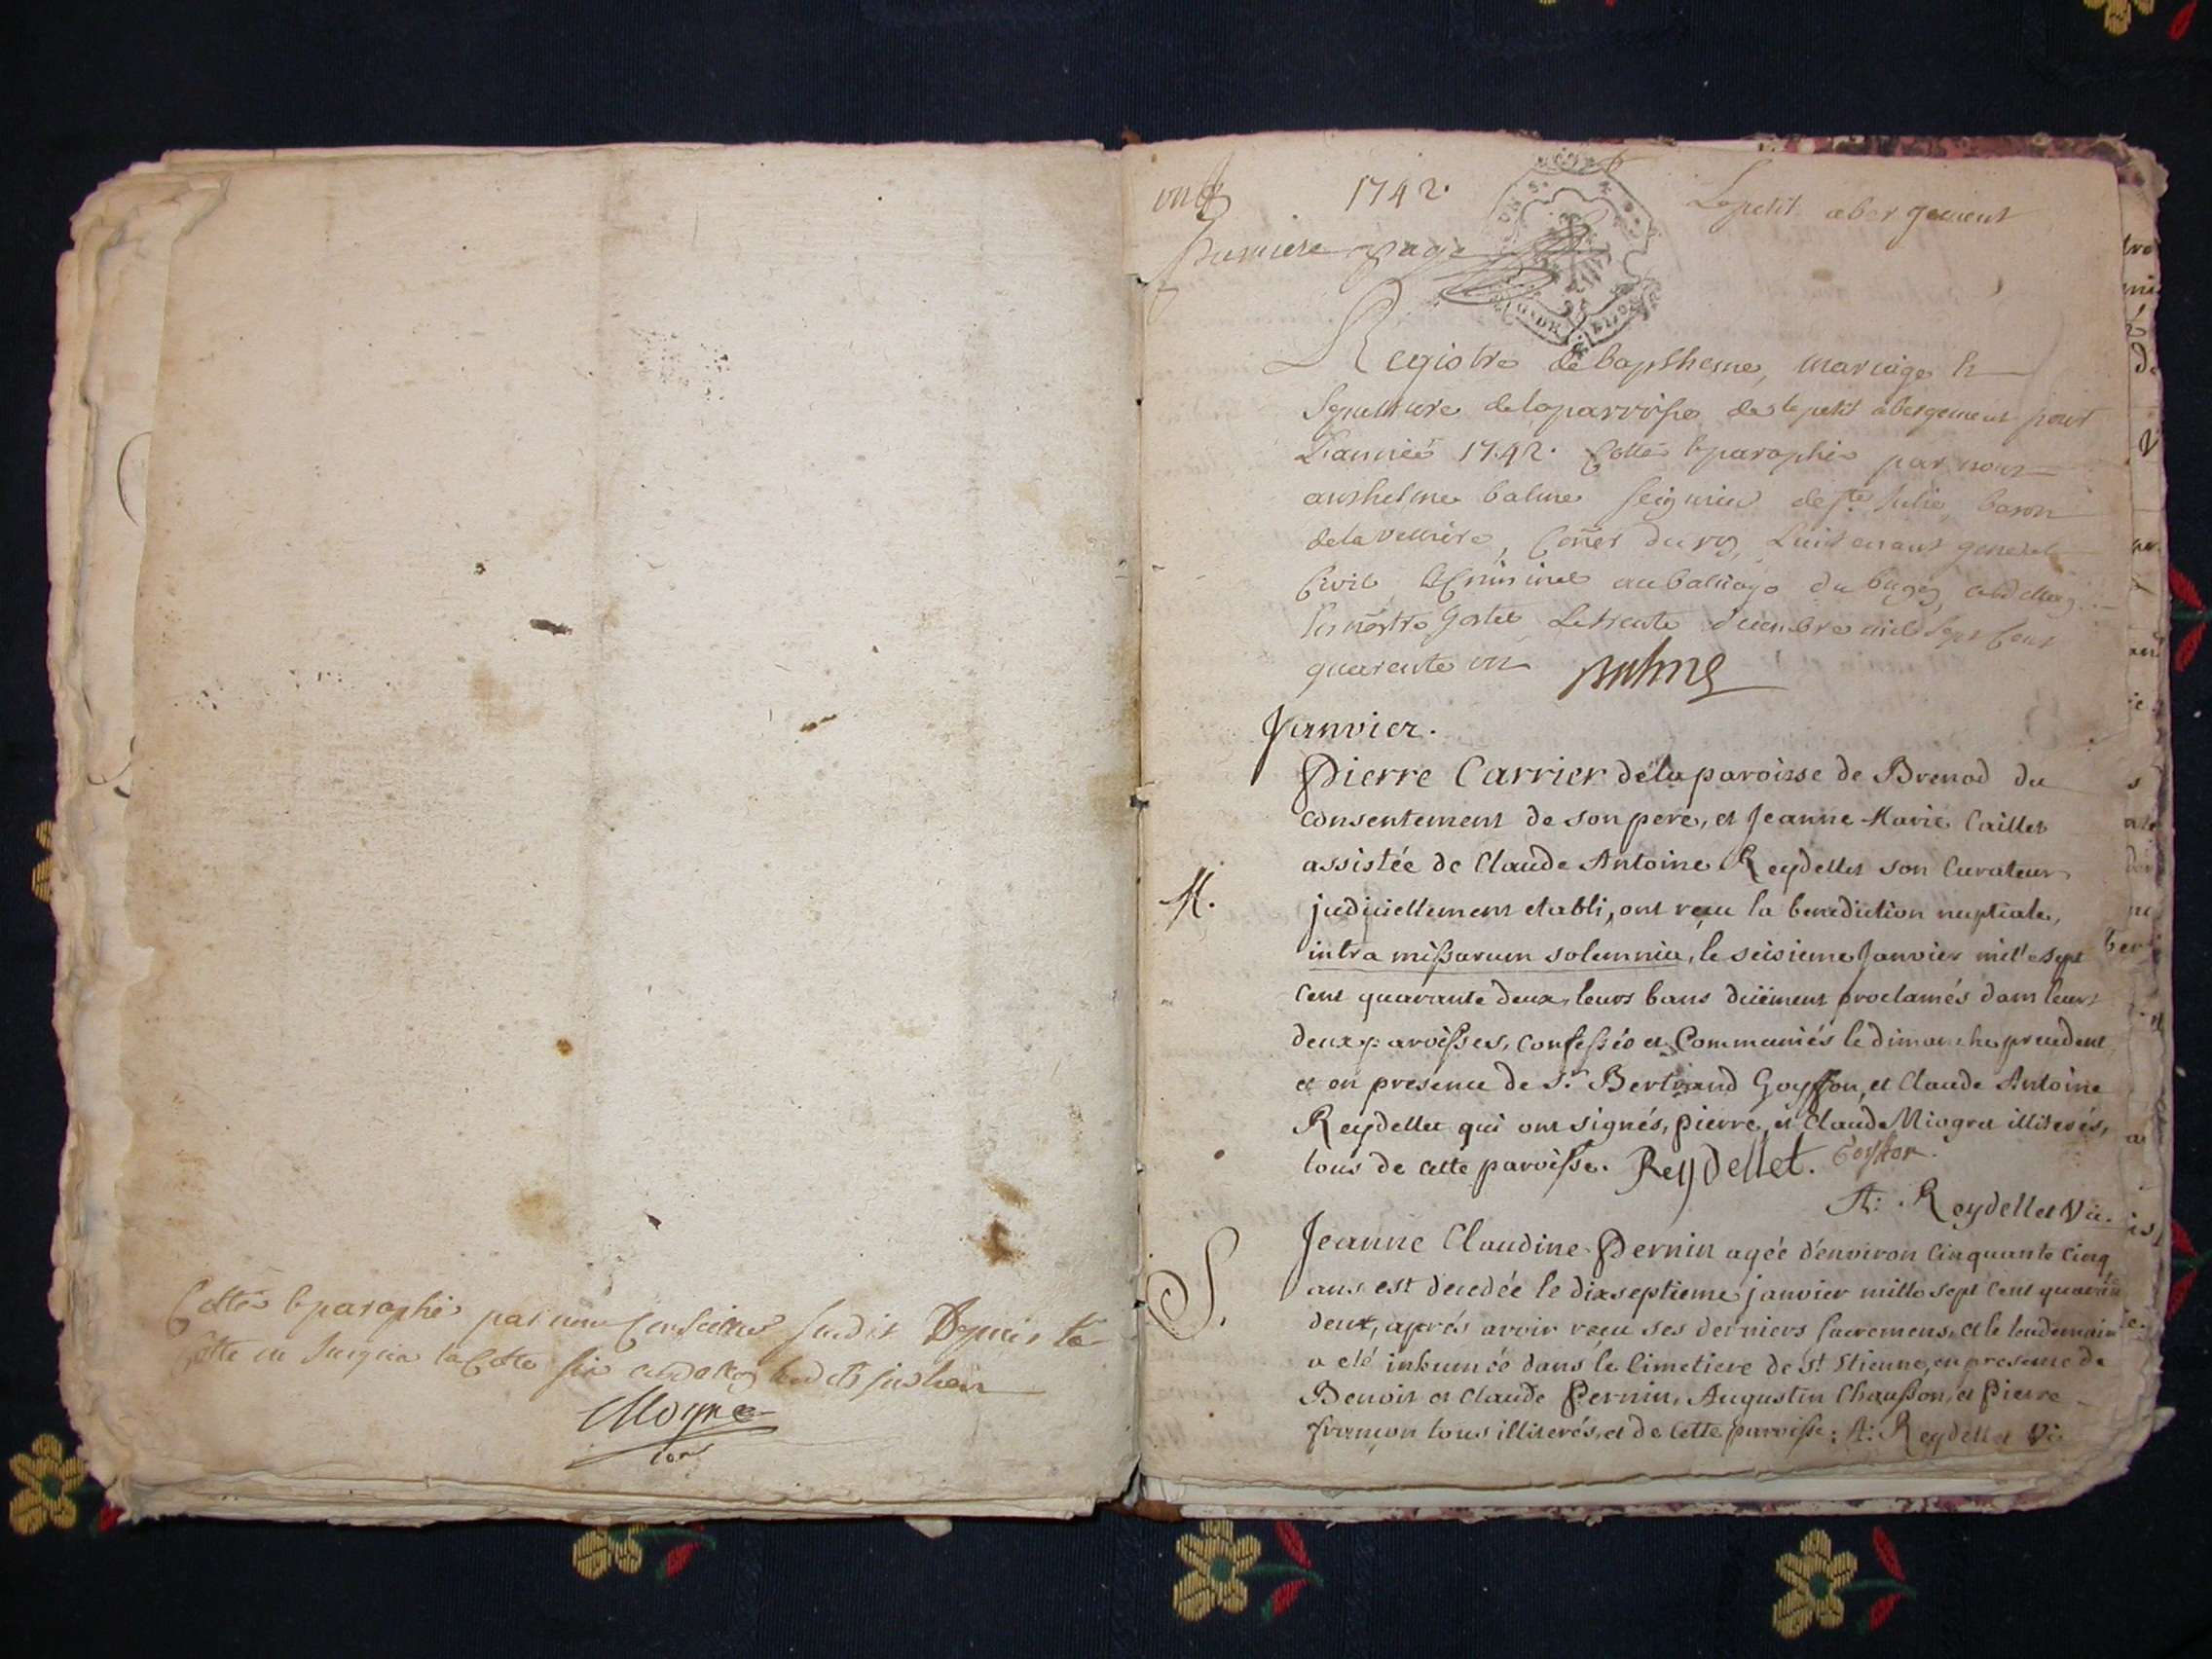 Cottés & paraphés par nous Conseiller susdit Depuis la
Cotte un Jusqu'a la Cotte six
Moyne
1742.
Le petit abergement
premiere page
Registre de baptheme, mariage &
Sepulture de la parroisse de le petit abergement pour
L'année 1742. Cotté & paraphé par nous
anthelme balme seigneur de Ste Julie, baron
de la velliere, Coner du roy, Lieutenant general
Civil & Criminel au baliage du bugey,
en nostre hostel Le trente decembre mil sept cent
quarente un balme
Janvier.
Pierre Carrier de la paroisse de Brenod du
consentement de son pere, et Jeanne-Marie Caillet
assistée de Claude Antoine Reydellet son Curateur
M. judiciellement etabli, ont reçu la benediction nuptiale,
intra missarum solemnia, le seisieme Janvier mil sept
cent quarante deux, leurs bans düement proclamés dans leurs
deux paroisses, confessés et Communiés le dimanche precedent,
et en presence de Sr. Bertrand Goyffon, et Claude Antoine
Reydellet qui ont signés, pierre, et Claude Miogret illiterés,
tous de cette paroisse. Reydellet. Goyffon.
A: Reydellet Vic.
Jeanne Claudine Pernin agée d'environ Cinquante Cinq
ans est decedée le dixseptieme janvier mille sept cent quarante
S. deux, aprés avoir reçu ses derniers sacremens, et le lendemain
a eté inhumée dans le Cimetiere de St Etienne, en presence de
Benoit et Claude Pernin, Augustin Chausson, et Pierre
françon tous illiterés, et de cette paroisse: A: Reydellet Vic.